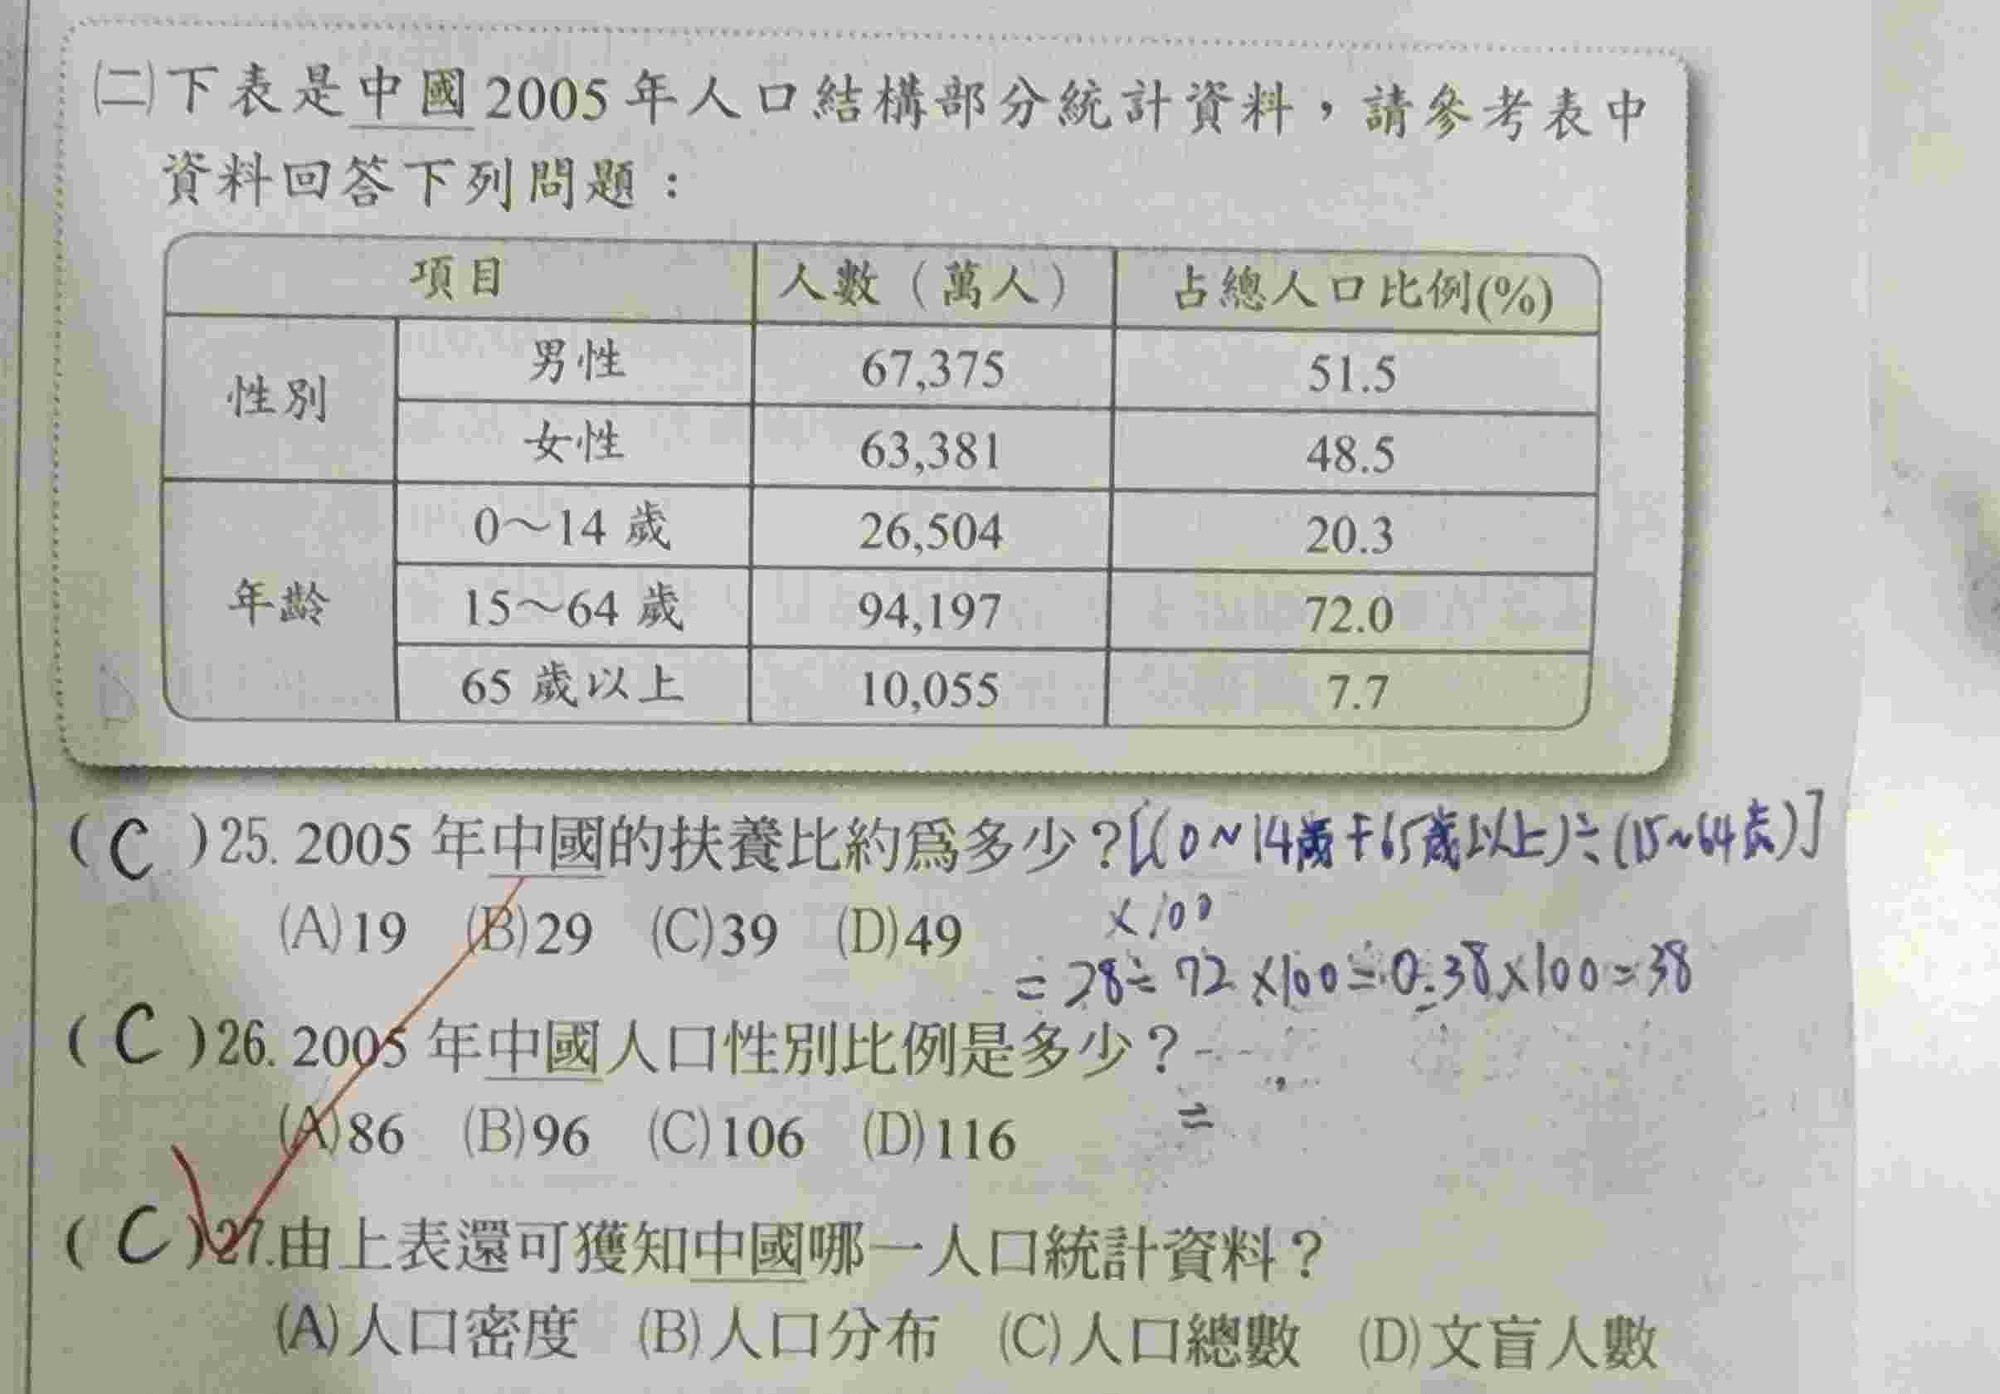 ㈡下表是中國2005年人口結構部分統計資料，請參考表中
資料回答下列問題：
項目 人數（萬人） 占總人口比例(%)
性別 男性 67,375 51.5
女性 63,381 48.5
年齡 0～14 歲 26,504 20.3
15～64 歲 94,197 72.0
65 歲以上 10,055 7.7
( C )25. 2005 年中國的扶養比約為多少？[(0~14歲+65歲以上)÷(15~64歲)]
×100
(A)19 (B)29 (C)39 (D)49
=28÷72×100=0.38×100=38
( C )26. 2005 年中國人口性別比例是多少？
(A)86 (B)96 (C)106 (D)116
( C )27.由上表還可獲知中國哪一人口統計資料？
(A)人口密度 (B)人口分布 (C)人口總數 (D)文盲人數